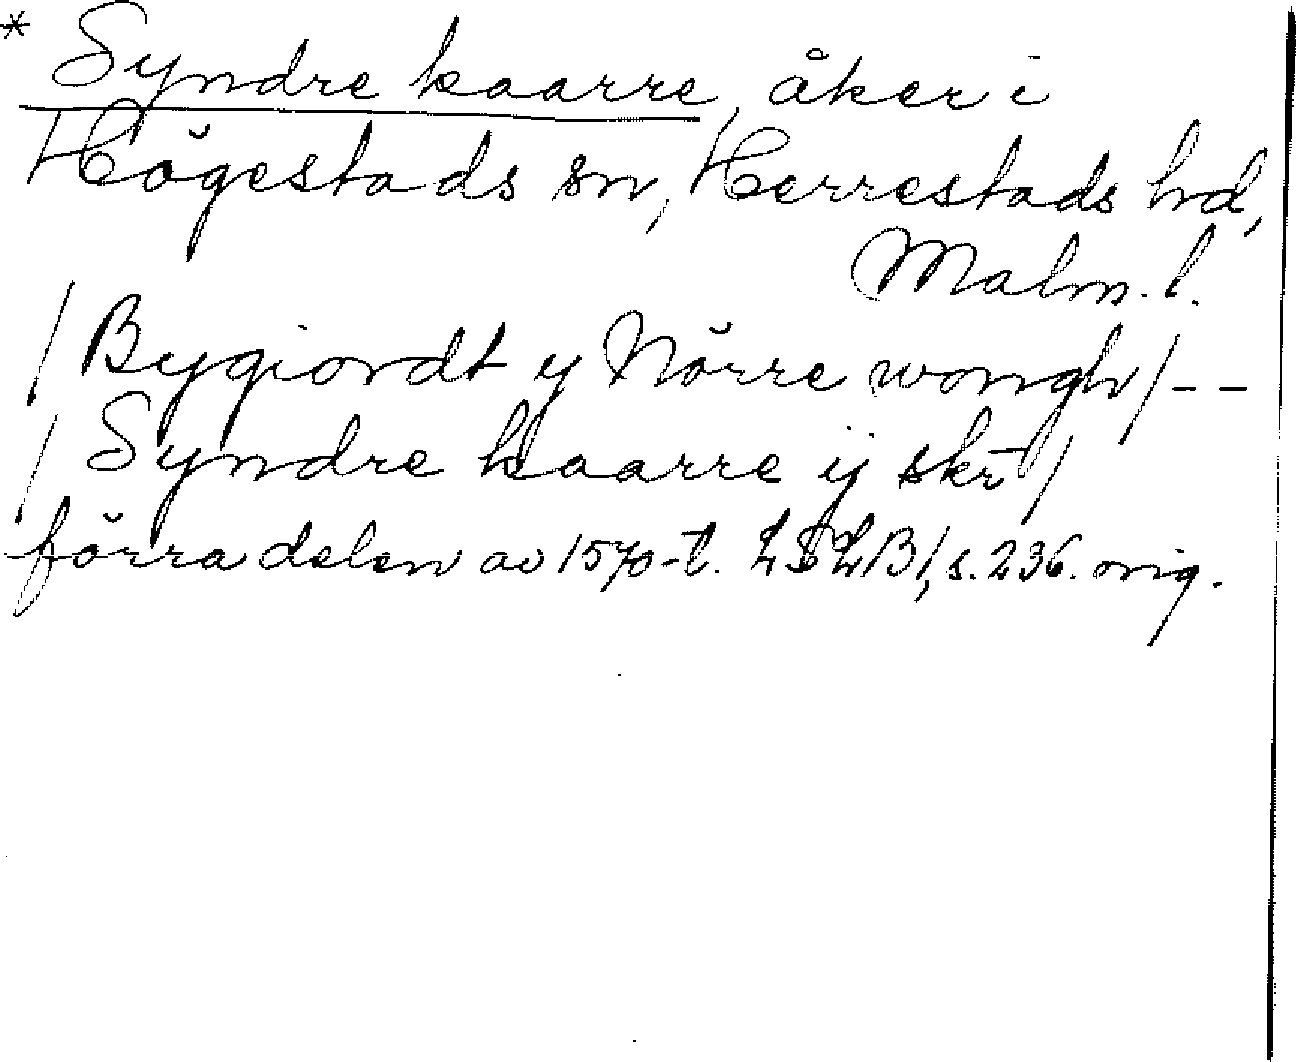 * Syndre kaarre, åker i
Högestads sn, Herrestads hd,
Malm. l.
/ Bygiordt y Nörre wongh / - -
/ Syndre kaarre ij skr /
förra delen av 1570-t. LSLB1, s. 236. orig.